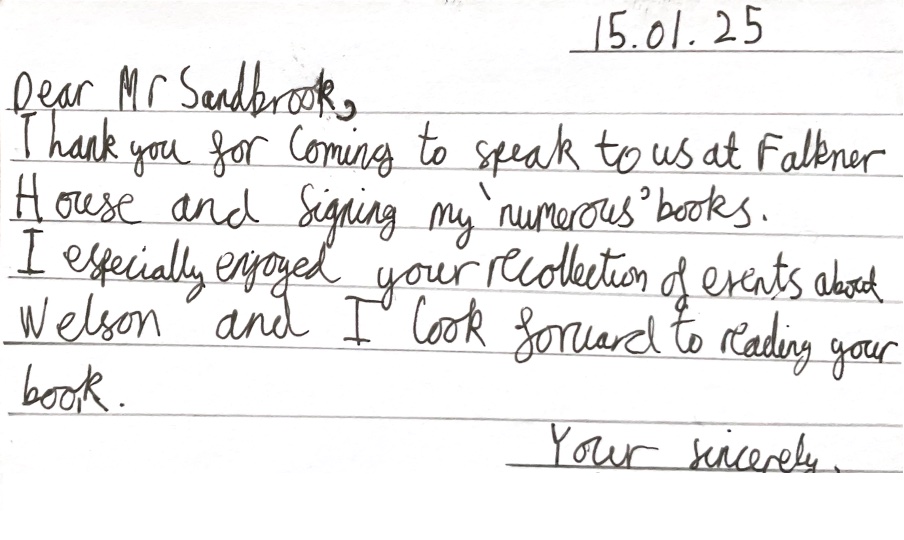 15.01.25
Dear Mr Sandbrook,
Thank you for Coming to speak to us at Falkner
House and Signing my 'numerous' books.
I especially enjoyed your recollection of events about
Welson and I look forward to reading your
book.
Your sincerely.